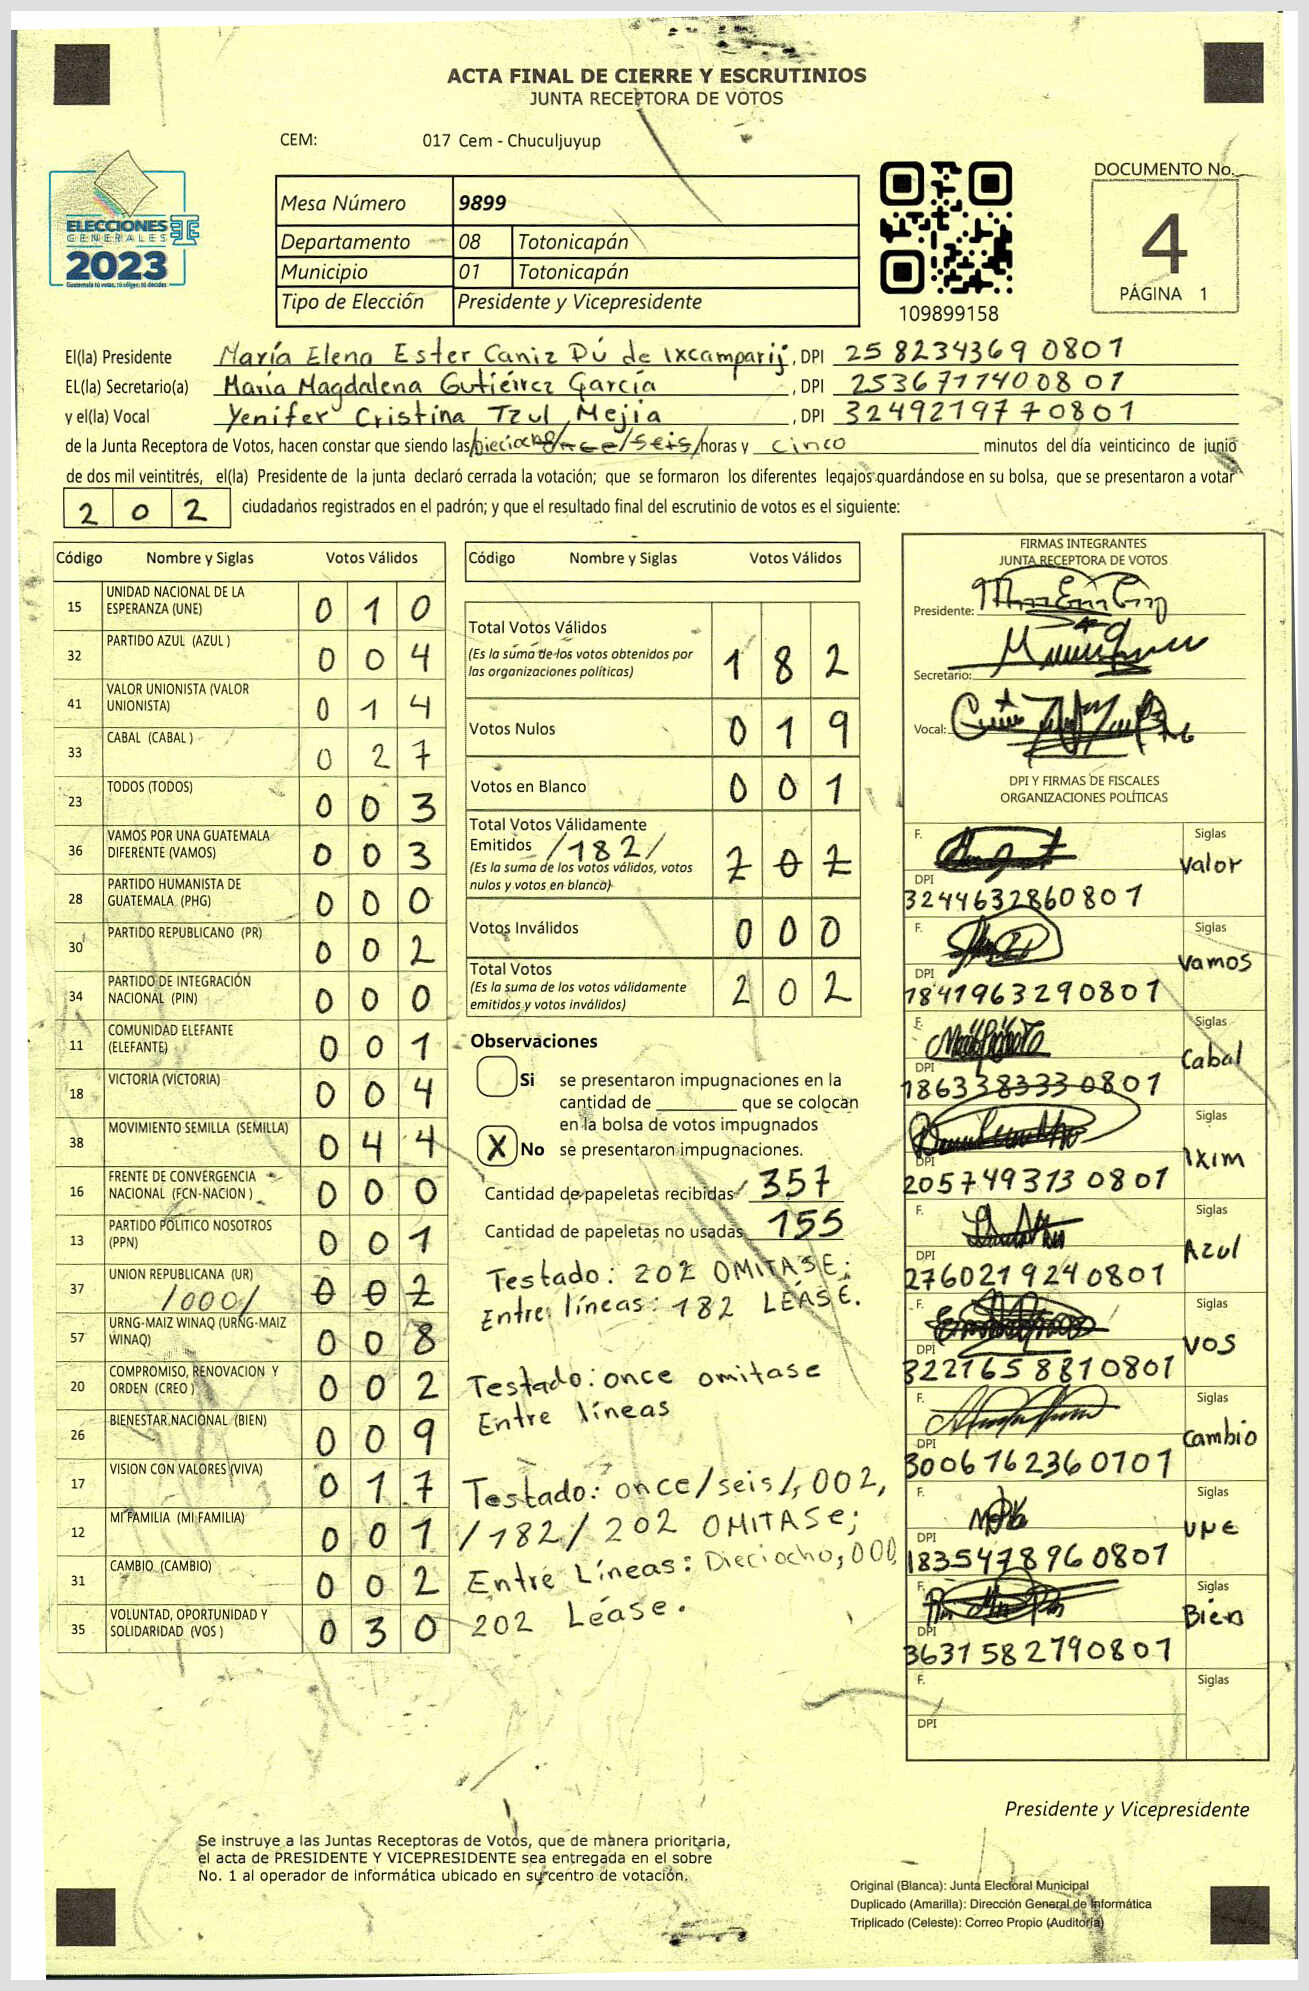 ACTA FINAL DE CIERRE Y ESCRUTINIOS
JUNTA RECEPTORA DE VOTOS
CEM: 017 Cem - Chuculjuyup
ELECCIONES
GENERALES
2023
Guatemala tú votas, tú eliges, tú decides
Mesa Número 9899
Departamento 08 Totonicapán
Municipio 01 Totonicapán
Tipo de Elección Presidente y Vicepresidente
109899158
DOCUMENTO No.
4
PÁGINA 1
El(la) Presidente María Elena Ester Caniz Pú de Ixcamparij, DPI 258234369 0801
EL(la) Secretario(a) María Magdalena Gutiérrez García, DPI 2536711400801
y el(la) Vocal Yenifer Cristina Tzul Mejia, DPI 3249219770801
de la Junta Receptora de Votos, hacen constar que siendo las /Dieciocho/once/seis/ horas y cinco minutos del día veinticinco de junio
de dos mil veintitrés, el(la) Presidente de la junta declaró cerrada la votación; que se formaron los diferentes legajos guardándose en su bolsa, que se presentaron a votar
2 0 2 ciudadanos registrados en el padrón; y que el resultado final del escrutinio de votos es el siguiente:
Código Nombre y Siglas Votos Válidos
15 UNIDAD NACIONAL DE LA ESPERANZA (UNE) 0 1 0
32 PARTIDO AZUL (AZUL ) 0 0 4
41 VALOR UNIONISTA (VALOR UNIONISTA) 0 1 4
33 CABAL (CABAL ) 0 2 7
23 TODOS (TODOS) 0 0 3
36 VAMOS POR UNA GUATEMALA DIFERENTE (VAMOS) 0 0 3
28 PARTIDO HUMANISTA DE GUATEMALA (PHG) 0 0 0
30 PARTIDO REPUBLICANO (PR) 0 0 2
34 PARTIDO DE INTEGRACIÓN NACIONAL (PIN) 0 0 0
11 COMUNIDAD ELEFANTE (ELEFANTE) 0 0 1
18 VICTORIA (VICTORIA) 0 0 4
38 MOVIMIENTO SEMILLA (SEMILLA) 0 4 4
16 FRENTE DE CONVERGENCIA NACIONAL (FCN-NACION ) 0 0 0
13 PARTIDO POLITICO NOSOTROS (PPN) 0 0 1
37 UNION REPUBLICANA (UR) /000/ 0 0 2
57 URNG-MAIZ WINAQ (URNG-MAIZ WINAQ) 0 0 8
20 COMPROMISO, RENOVACION Y ORDEN (CREO ) 0 0 2
26 BIENESTAR NACIONAL (BIEN) 0 0 9
17 VISION CON VALORES (VIVA) 0 1 7
12 MI FAMILIA (MI FAMILIA) 0 0 1
31 CAMBIO (CAMBIO) 0 0 2
35 VOLUNTAD, OPORTUNIDAD Y SOLIDARIDAD (VOS ) 0 3 0
Código Nombre y Siglas Votos Válidos
Total Votos Válidos 1 8 2
(Es la suma de los votos obtenidos por
las organizaciones políticas)
Votos Nulos 0 1 9
Votos en Blanco 0 0 1
Total Votos Válidamente
Emitidos /182/ 2 0 2
(Es la suma de los votos válidos, votos
nulos y votos en blanco)
Votos Inválidos 0 0 0
Total Votos 2 0 2
(Es la suma de los votos válidamente
emitidos y votos inválidos)
Observaciones
Si se presentaron impugnaciones en la
cantidad de ________ que se colocan
en la bolsa de votos impugnados
X No se presentaron impugnaciones.
Cantidad de papeletas recibidas 357
Cantidad de papeletas no usadas 155
Testado: 202 OMITASE;
Entre líneas: 182 LEASE.
Testado: once omitase
Entre líneas
Testado: once/seis/,002,
/182/202 OMITASE;
Entre Líneas: Dieciocho, 000,
202 Léase.
FIRMAS INTEGRANTES
JUNTA RECEPTORA DE VOTOS
Presidente:
Secretario:
Vocal:
DPI Y FIRMAS DE FISCALES
ORGANIZACIONES POLÍTICAS
F. Siglas Valor
DPI 3244632860801
F. Siglas Vamos
DPI 1841963290801
F. Siglas Cabal
DPI 1863383330801
F. Siglas Ixim
DPI 2057493130801
F. Siglas Azul
DPI 2760219240801
F. Siglas VOS
DPI 3221658810801
F. Siglas Cambio
DPI 3006762360101
F. Siglas UNE
DPI 1835478960801
F. Siglas Bien
DPI 3631582790801
F. Siglas
DPI
Presidente y Vicepresidente
Se instruye a las Juntas Receptoras de Votos, que de manera prioritaria,
el acta de PRESIDENTE Y VICEPRESIDENTE sea entregada en el sobre
No. 1 al operador de informática ubicado en su centro de votación.
Original (Blanca): Junta Electoral Municipal
Duplicado (Amarilla): Dirección General de Informática
Triplicado (Celeste): Correo Propio (Auditoría)